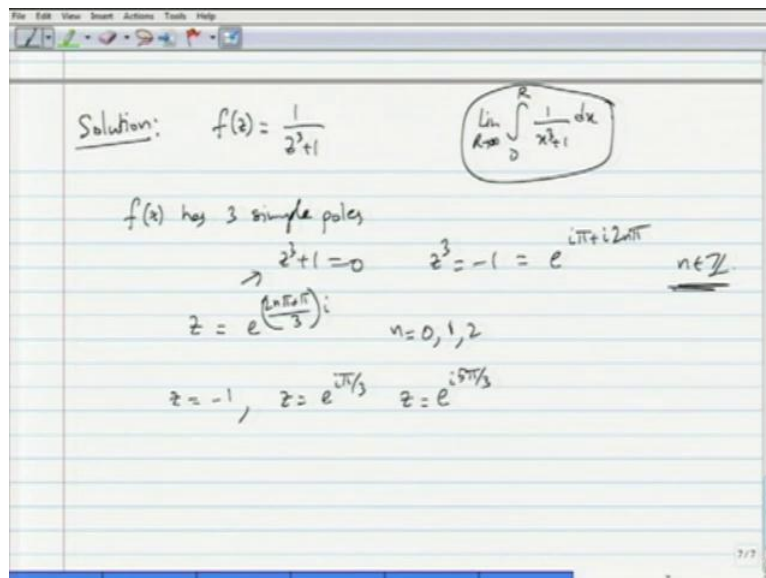 File Edit View Insert Actions Tools Help
Solution: f(z) = 1/(z³+1) Lim R→∞ ∫₀ᴿ 1/(x³+1) dx
f(z) has 3 simple poles
z³+1=0 z³ = -1 = e^(iπ+i2nπ) n∈ℤ.
z = e^((2nπ+π)/3)i n=0,1,2
z = -1, z = e^(iπ/3) z = e^(i5π/3)
7/7